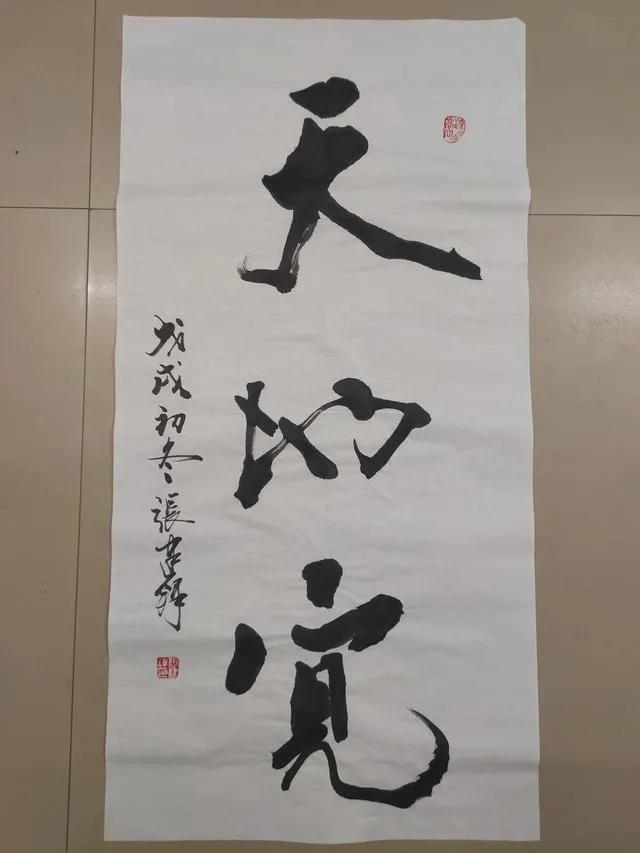 天地寬
戊戌初冬張建鋒